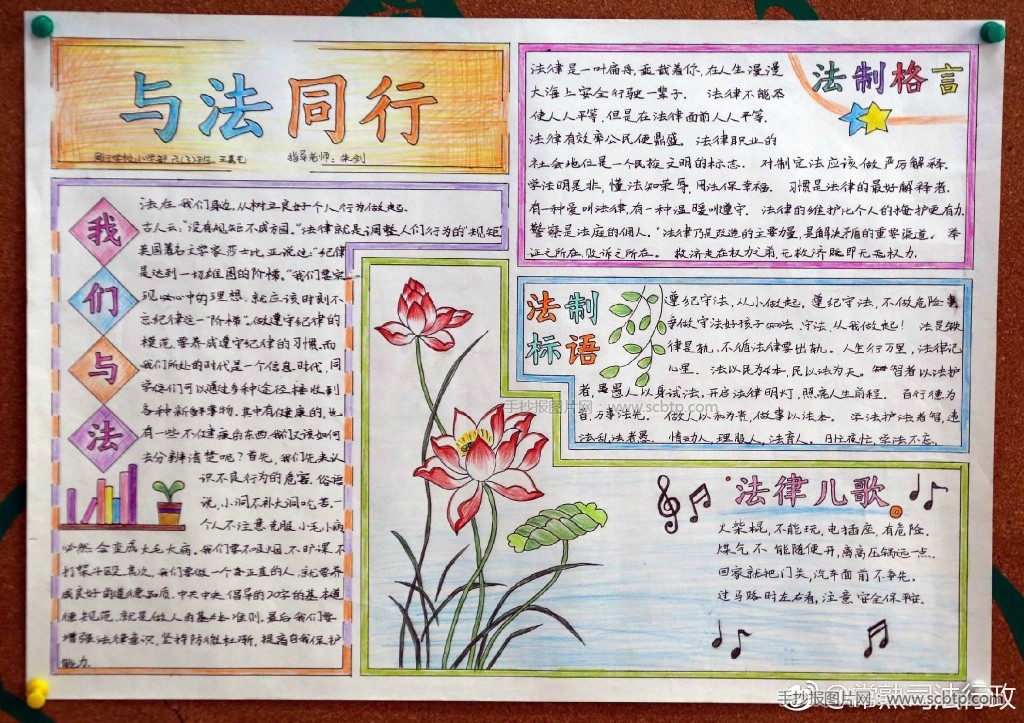 与法同行
指导老师：朱剑
我们与法
法在我们身边，从树立良好个人行为做起.
古人云："没有规矩不成方圆."法律就是调整人们行为的"规矩
英国著名文学家莎士比亚说过："纪律
是达到一切雄图的阶梯."我们要实
现心中的理想，就应该时刻不
忘纪律这一"阶梯"。做遵守纪律的
模范，要养成遵守纪律的习惯，而
我们所处的时代是一个信息时代，同
学们可以通过多种途径接收到
各种新鲜事物，其中有健康的，也
有一些不健康的东西，我们应该如何
去分辨清楚呢？首先，我们先来认
识不良行为的危害，俗语
说，小洞不补大洞吃苦.
个人不注意克服小毛小病
必然会变成大毛大病，我们要不吸烟，不旷课，不
打架斗殴，其次，我们要做一个真正直的人，就要养
成良好的道德品质，中共中央倡导的20字的基本道
德规范，就是做人的基本准则，最后我们要
增强法律意识，坚持防微杜渐，提高自我保护
能力.
法制格言
法律是一叶扁舟，载着你，在人生漫漫
大海上安全行驶一辈子. 法律不能不
使人人平等，但是在法律面前人人平等.
法律有效率公民便鼎盛. 法律职业的
社会地位是一个民族文明的标志. 对制定法应该做严厉解释.
学法明是非，懂法知荣辱，用法保幸福. 习惯是法律的最好解释者.
有一种爱叫法律，有一种温暖叫遵守. 法律的维护比个人的掩护更有力
警察是法庭的佣人. 法律乃是改造的主要力量，是解决矛盾的重要渠道. 举
证之所在，败诉之所在. 救济走在权力之前，无救济既即无无权力.
法制标语
遵纪守法，从小做起，遵纪守法，不做危险事
争做守法好孩子 守法，从我做起！ 法是铁
律是轨，不循法律要出轨. 人生行万里，法律记
心里. 法以民为本，民以法为天。 智者以法护
者，愚人以身试法，开启法律明灯，照亮人生前程. 百行德为
首，万事法先. 做人以和为贵，做事以法本. 学法护法者智，违
法乱法者愚. 情动人，理服人，法育人。 日忙夜忙，学法不忘.
法律儿歌
火柴棍，不能玩，电插座，有危险.
煤气不能随便开，离高压锅远一点.
回家就把门关，汽车面前不争先.
过马路时左右看，注意安全保平安.
手抄报图片网 www.scbtp.com
手抄报图片网 www.scbtp.com
@常熟司法行政